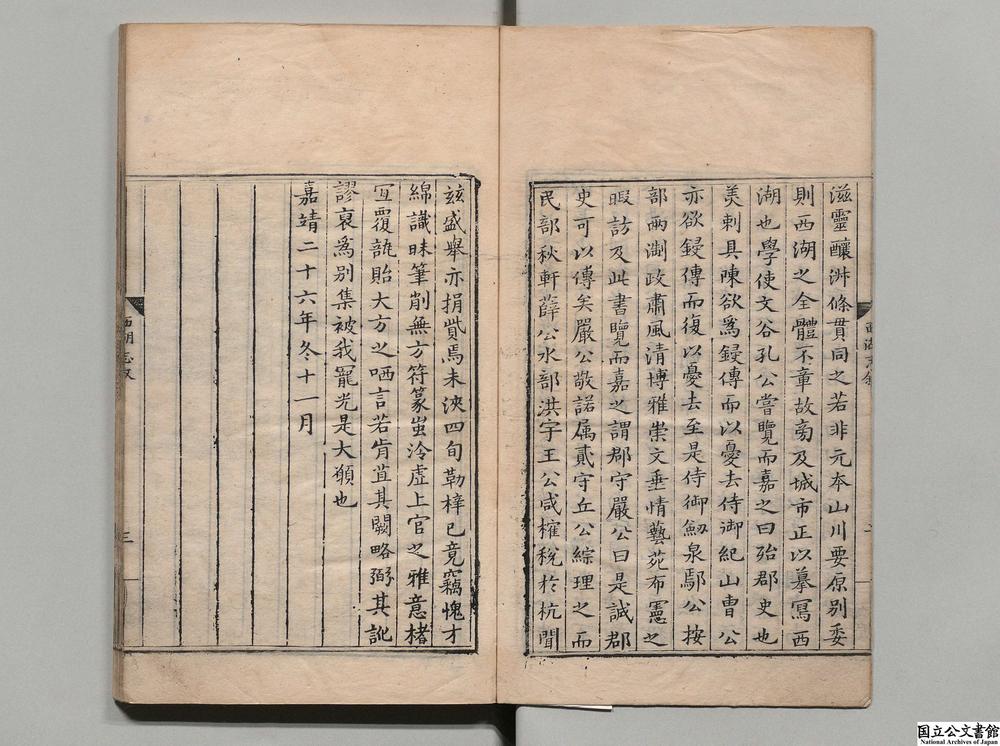 滋靈釀淋條貫同之若非元本山川要原别委
則西湖之全體不章故旁及城市正以摹寫西
湖也學使文谷孔公嘗覽而嘉之曰殆郡史也
美刺具陳欲爲鋟傳而以憂去侍御紀山曹公
亦欲鋟傳而復以憂去至是侍御劔泉鄢公按
部兩淛政肅風清博雅崇文垂情藝苑布憲之
暇訪及此書覽而嘉之謂郡守嚴公曰是誠郡
史可以傳矣嚴公敬諾属貳守丘公綜理之而
民部秋軒薛公水部洪宇王公咸榷稅於杭聞
兹盛舉亦捐貲焉未浹四旬勒梓已竟竊愧才
綿識昧筆削無方符篆蚩泠虚上官之雅意楮
宜覆瓿貽大方之哂言若肯苴其闕略彌其訛
謬裒爲别集被我寵光是大願也
嘉靖二十六年冬十一月
西湖志叙
三
国立公文書館
National Archives of Japan